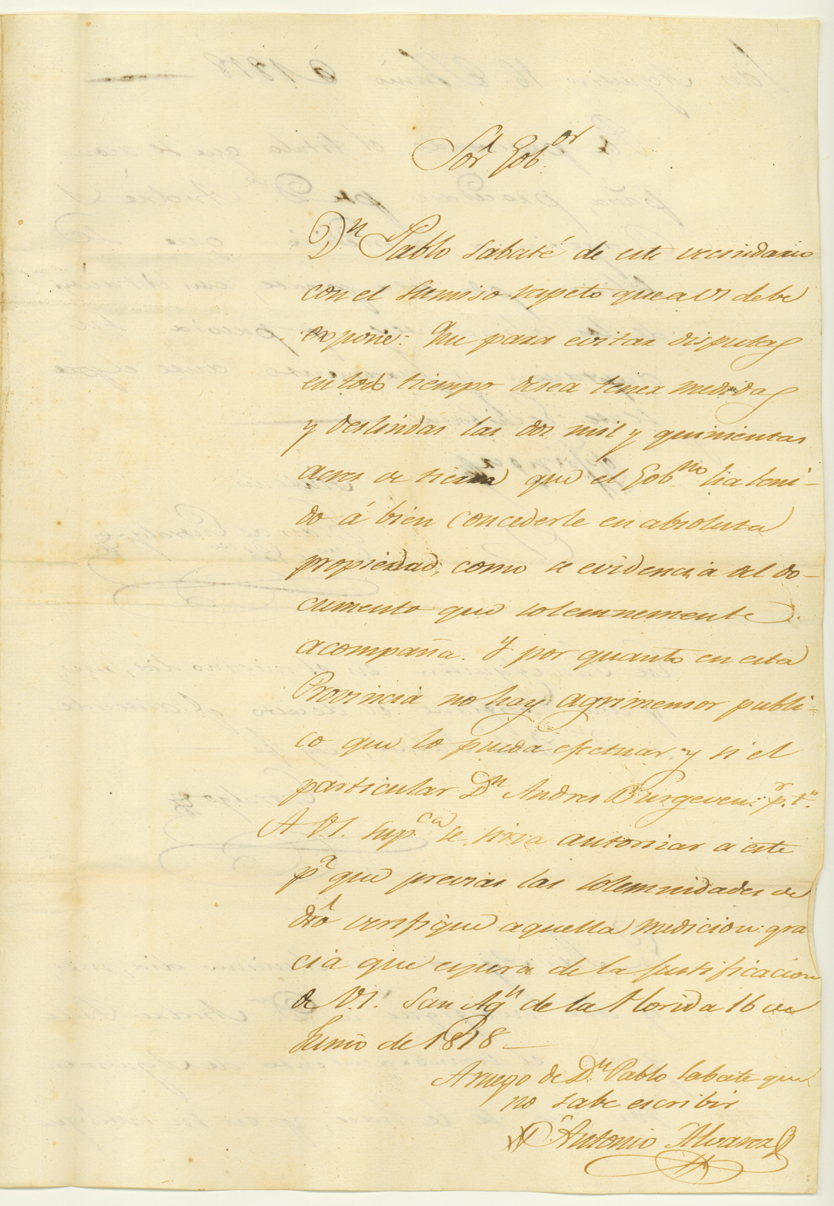 Sor. Gobor.
Dn. Pablo Sabaté de este vecindario
con el sumiso respeto que a VS debe
expone: Que para evitar disputas
en todo tiempo desea tener medidas
y deslindas las dos mil y quinientas
acres de tierra que el Gobno. ha teni-
do á bien concederle en absoluta
propiedad, como se evidencia del do-
cumento que solemnemente
acompaña. Y por quanto en esta
Provincia no hay agrimensor publi-
co que lo pueda efectuar, y si el
particular Dn. Andres Burgeven: pr. tto.
A VS. supca. se sirva autorizar a este
pa. que previas las solemnidades de
dro. verifique aquella medicion: gra
cia que espera de la justificacion
de VS. San Agn. de la Florida 16 de
Junio de 1818 —
A ruego de Dn. Pablo Sabate que
no sabe escribir
Antonio Alvarez